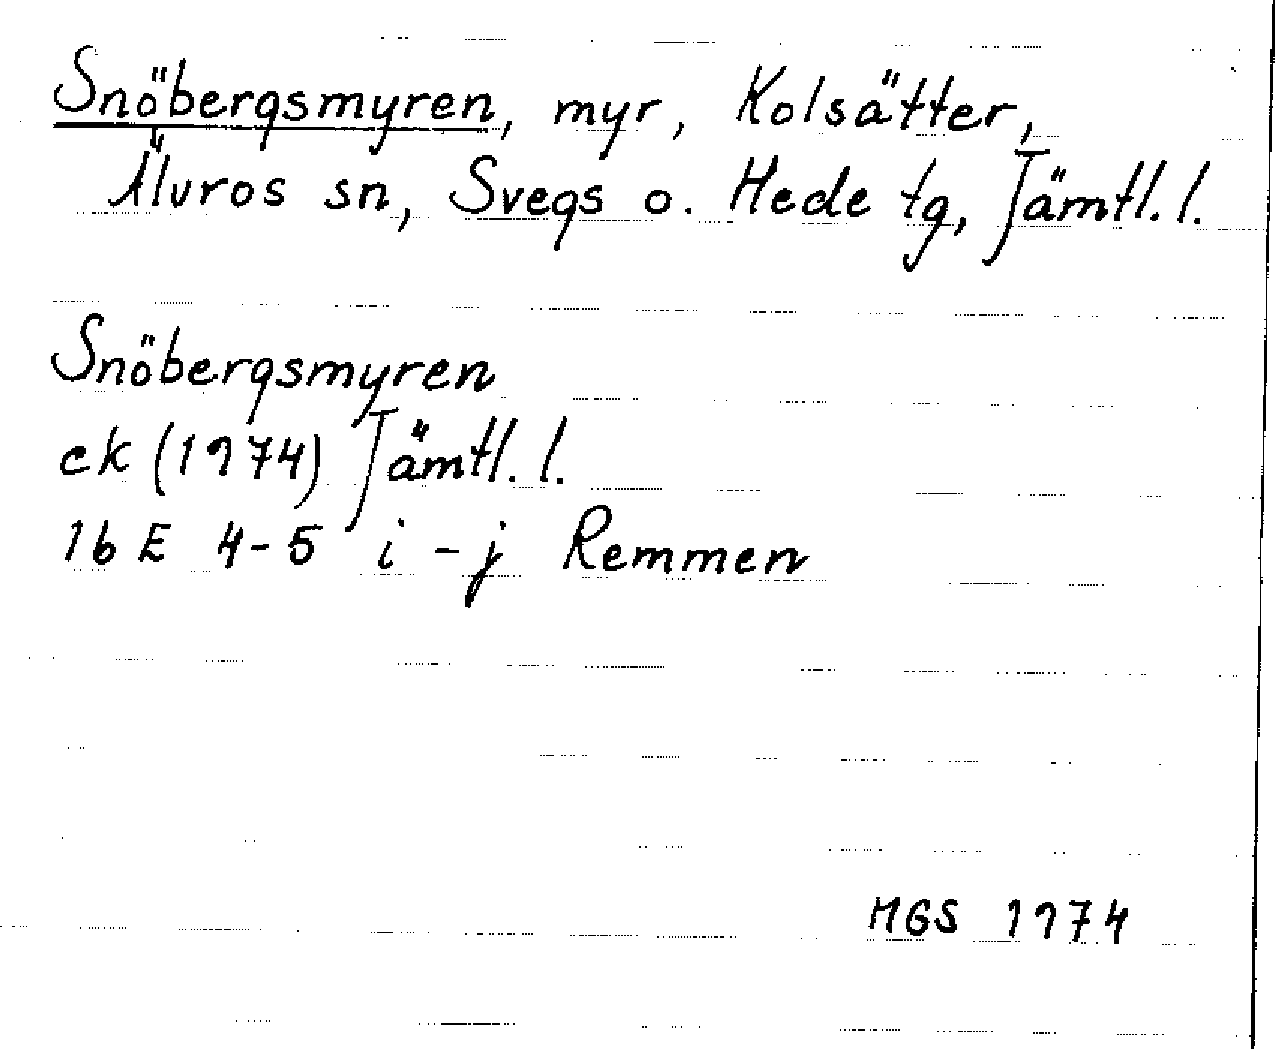 Snöbergsmyren, myr, Kolsätter,
Älvros sn, Svegs o. Hede tg, Jämtl. l.
Snöbergsmyren
ek (1974) Jämtl. l.
16 E 4-5 i - j Remmen
MGS 1974